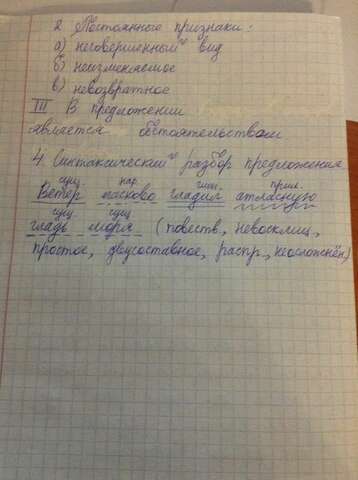 2. Постоянные признаки:
а) несовершенный вид
б) неизменяемое
в) невозвратное
III В предложении
является обстоятельством
4. Синтаксический разбор предложения
сущ. нар. глаг. прил.
Ветер ласково гладил атласную
сущ сущ
гладь моря (повеств., невосклиц,
простое, двусоставное, распр., неосложнён)